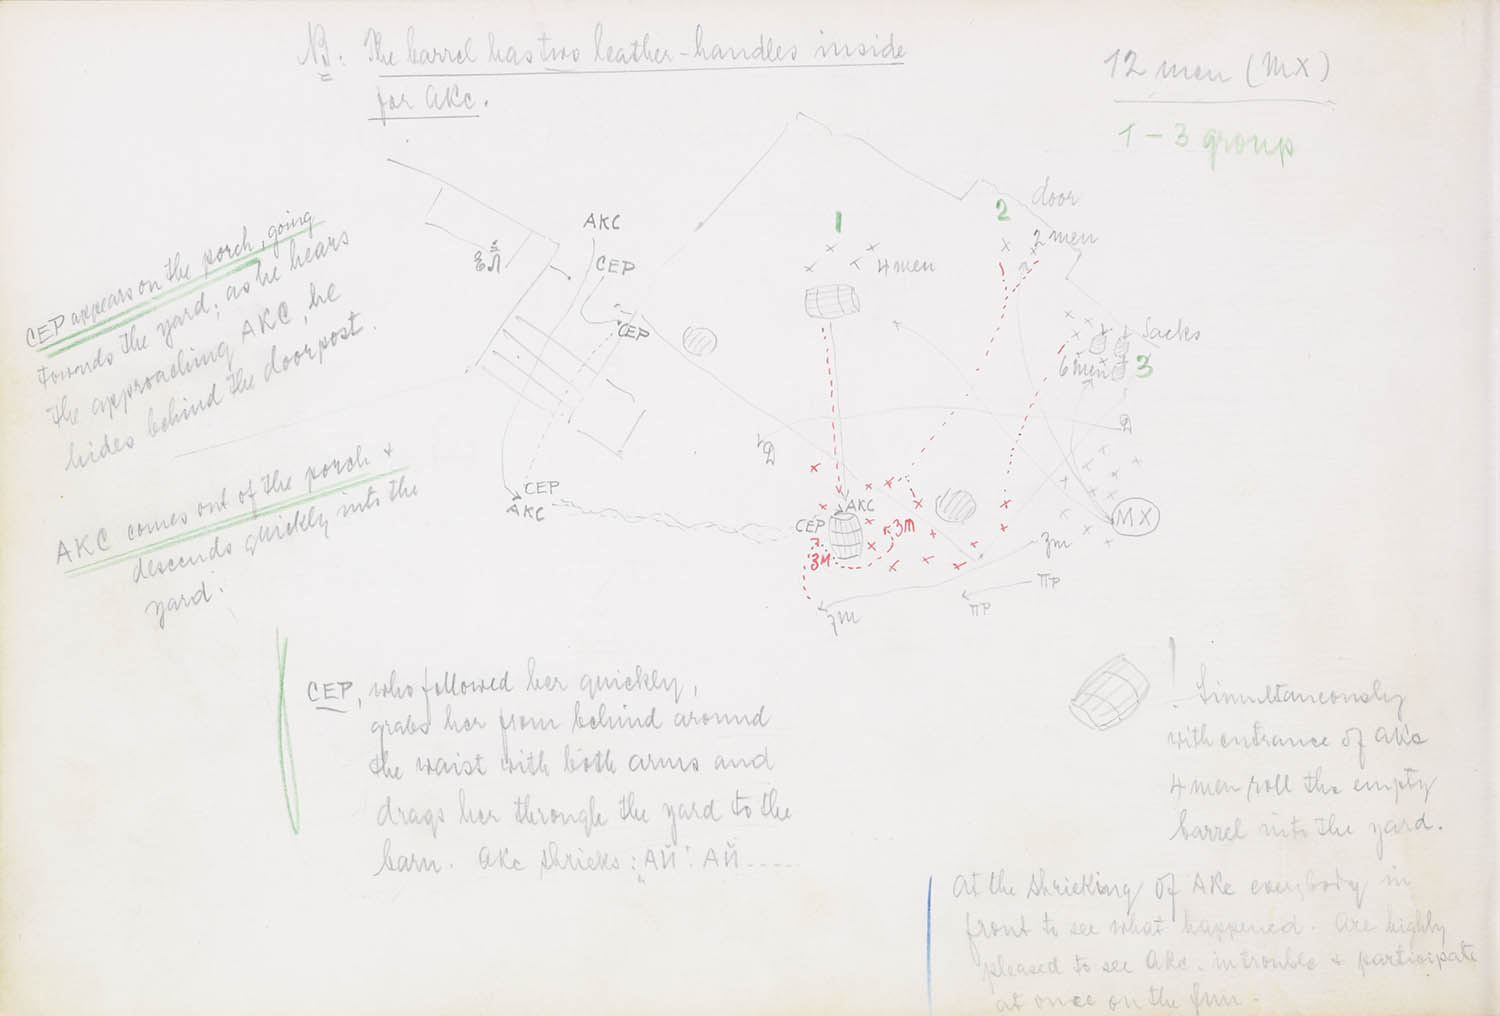 NB: The barrel has two leather-handles inside
for AKC.
12 men (MX)
1 – 3 group
CEP appears on the porch, going
towards the yard; as he hears
the approaching AKC, he
hides behind the doorpost.
AKC comes out of the porch +
descends quickly into the
yard!
AKC
CEP
CEP
CEP
AKC
1
4 men
2
door
2 men
Sacks
6 men
3
Д
Д
AKC
CEP
3M
3m
MX
3m
3m
ПР
ПР
CEP, who followed her quickly,
grabs her from behind around
the waist with both arms and
drags her through the yard to the
barn. AKC shrieks: „АЙ! АЙ----
! Simultaneously
with entrance of AKC
4 men roll the empty
barrel into the yard.
At the shrieking of AKC everybody in
front to see what happened. Are highly
pleased to see AKC. in trouble + participate
at once on the fun -